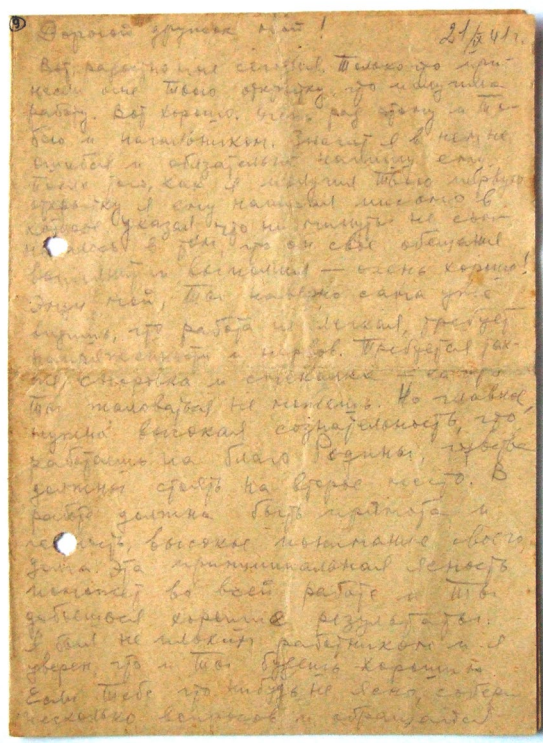 9
Дорогой дружок мой!
21/X 41 г.
Вот радостно мне сегодня. Только что при-
несли мне твою открытку, что получила
работу. Вот хорошо. рад этому и то-
бою и начальником. Значит я в нем не
ошибся и обязательно напишу ему.
После того, как я получил твою первую
открытку я ему написал письмо в
котором указал, что ни минуты не сом-
невалось в том, что он свое обещание
выполнит и выполнил — очень хорошо!
мой, Ты наверно сама уже
видишь, что работа не легкая, требует
напряженности и нервов. Требуется так-
же, и смекалка — на что
ты жаловаться не можешь. Но главное
нужна высокая сознательность, что
работаешь на благо Родины, чувства
должны стоять на второе место. В
работе должна быть прямота и
высокое понимание своего
дела. Эта принципиальная ясность
поможет во всей работе и ты
добьешься хорошие результаты.
Я был не плохим работником и я
уверен, что и ты будешь хорошим
Если тебе что нибудь не ясно,
несколько вопросов и обращайся